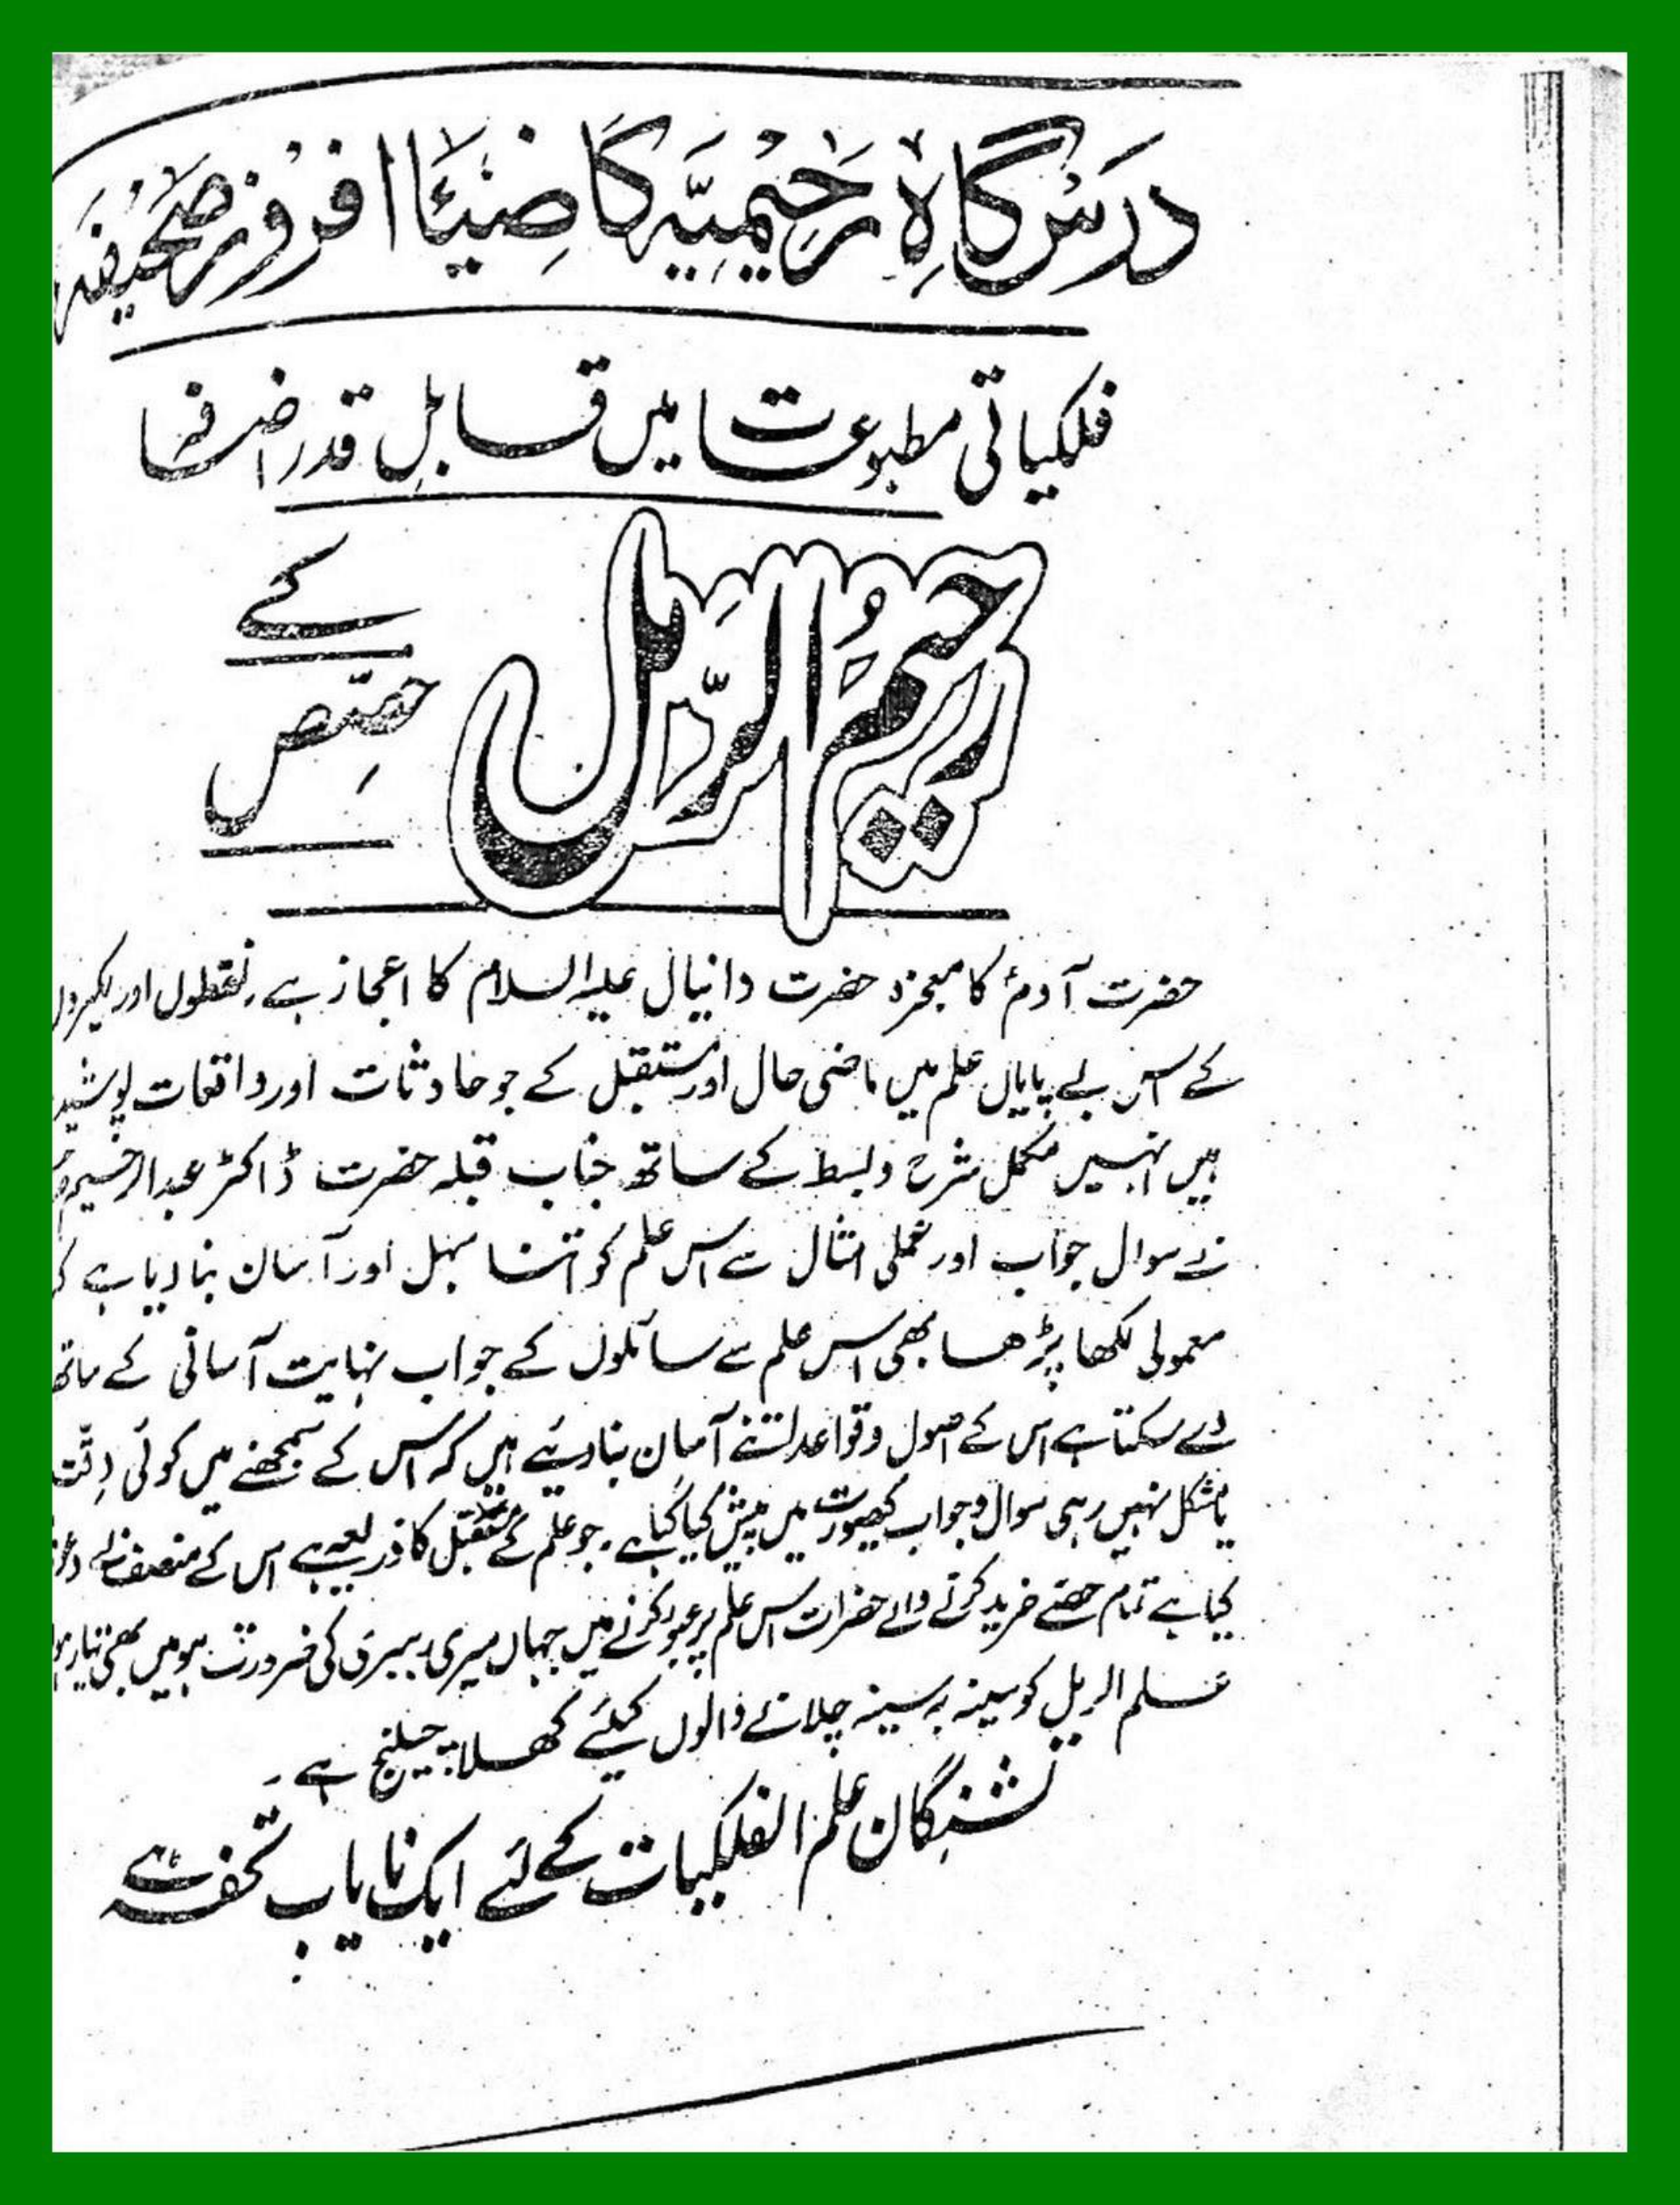 درس گاہِ رحیمیہ کا ضیاء افروز صحیفہ
فلکیاتی مطبوعات میں قابلِ قدر اضافہ
رحیمُ الرّمل کے
حصّص
حضرت آدمؑ کا معجزہ حضرت دانیال علیہ السلام کا اعجاز ہے۔ نقطوں اور لکیروں
کے اس بے پایاں علم میں ماضی حال اور مستقبل کے جو حادثات اور واقعات پوشیدہ
ہیں انہیں مکمل شرح و بسط کے ساتھ جناب قبلہ حضرت ڈاکٹر عبدالرحیم
نے سوال جواب اور عملی امثال سے اس علم کو اتنا سہل اور آسان بنا دیا ہے کہ
معمولی لکھا پڑھا بھی اس علم سے سائلوں کے جواب نہایت آسانی کے ساتھ
دے سکتا ہے اس کے اصول و قواعد اتنے آسان بنا دیئے ہیں کہ اس کے سمجھنے میں کوئی دِقّت
یا مشکل نہیں رہی سوال و جواب کی صورت میں پیش کیا گیا ہے۔ جو علم کے مستقبل کا ذریعہ ہے اس کے مصنف نے
کیا ہے تمام حصّے خرید کرنے والے حضرات اس علم پر عبور کرنے میں جہاں میری رہبری کی ضرورت ہو میں بھی تیار ہوں
علم الرمل کو سینہ بہ سینہ چلانے والوں کیلئے کھلا چیلنج ہے۔
تشنگان علم الفلکیات کے لئے ایک نایاب تحفہ ہے